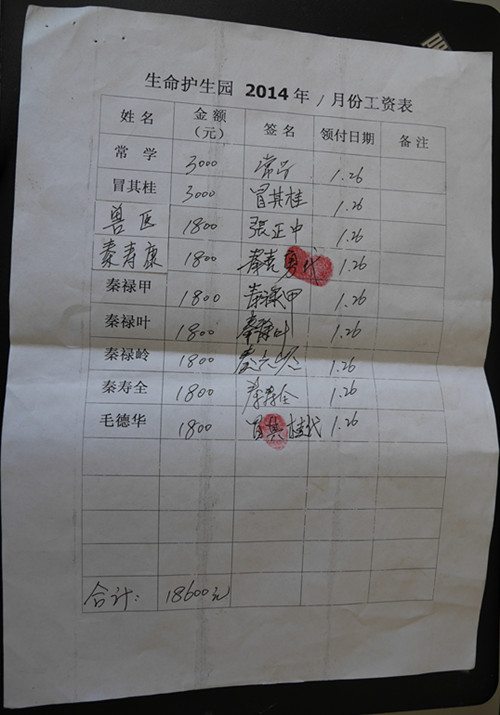 生命护生园 2014年 1月份工资表
姓名 金额(元) 签名 领付日期 备注
常学 3000 常学 1.26
冒其桂 3000 冒其桂 1.26
兽医 1800 張正中 1.26
秦寿康 1800 秦寿 代 1.26
秦禄甲 1800 秦禄甲 1.26
秦禄叶 1800 秦禄叶 1.26
秦禄岭 1800 秦六 1.26
秦寿全 1800 秦寿全 1.26
毛德华 1800 冒其桂代 1.26
合计: 18600元